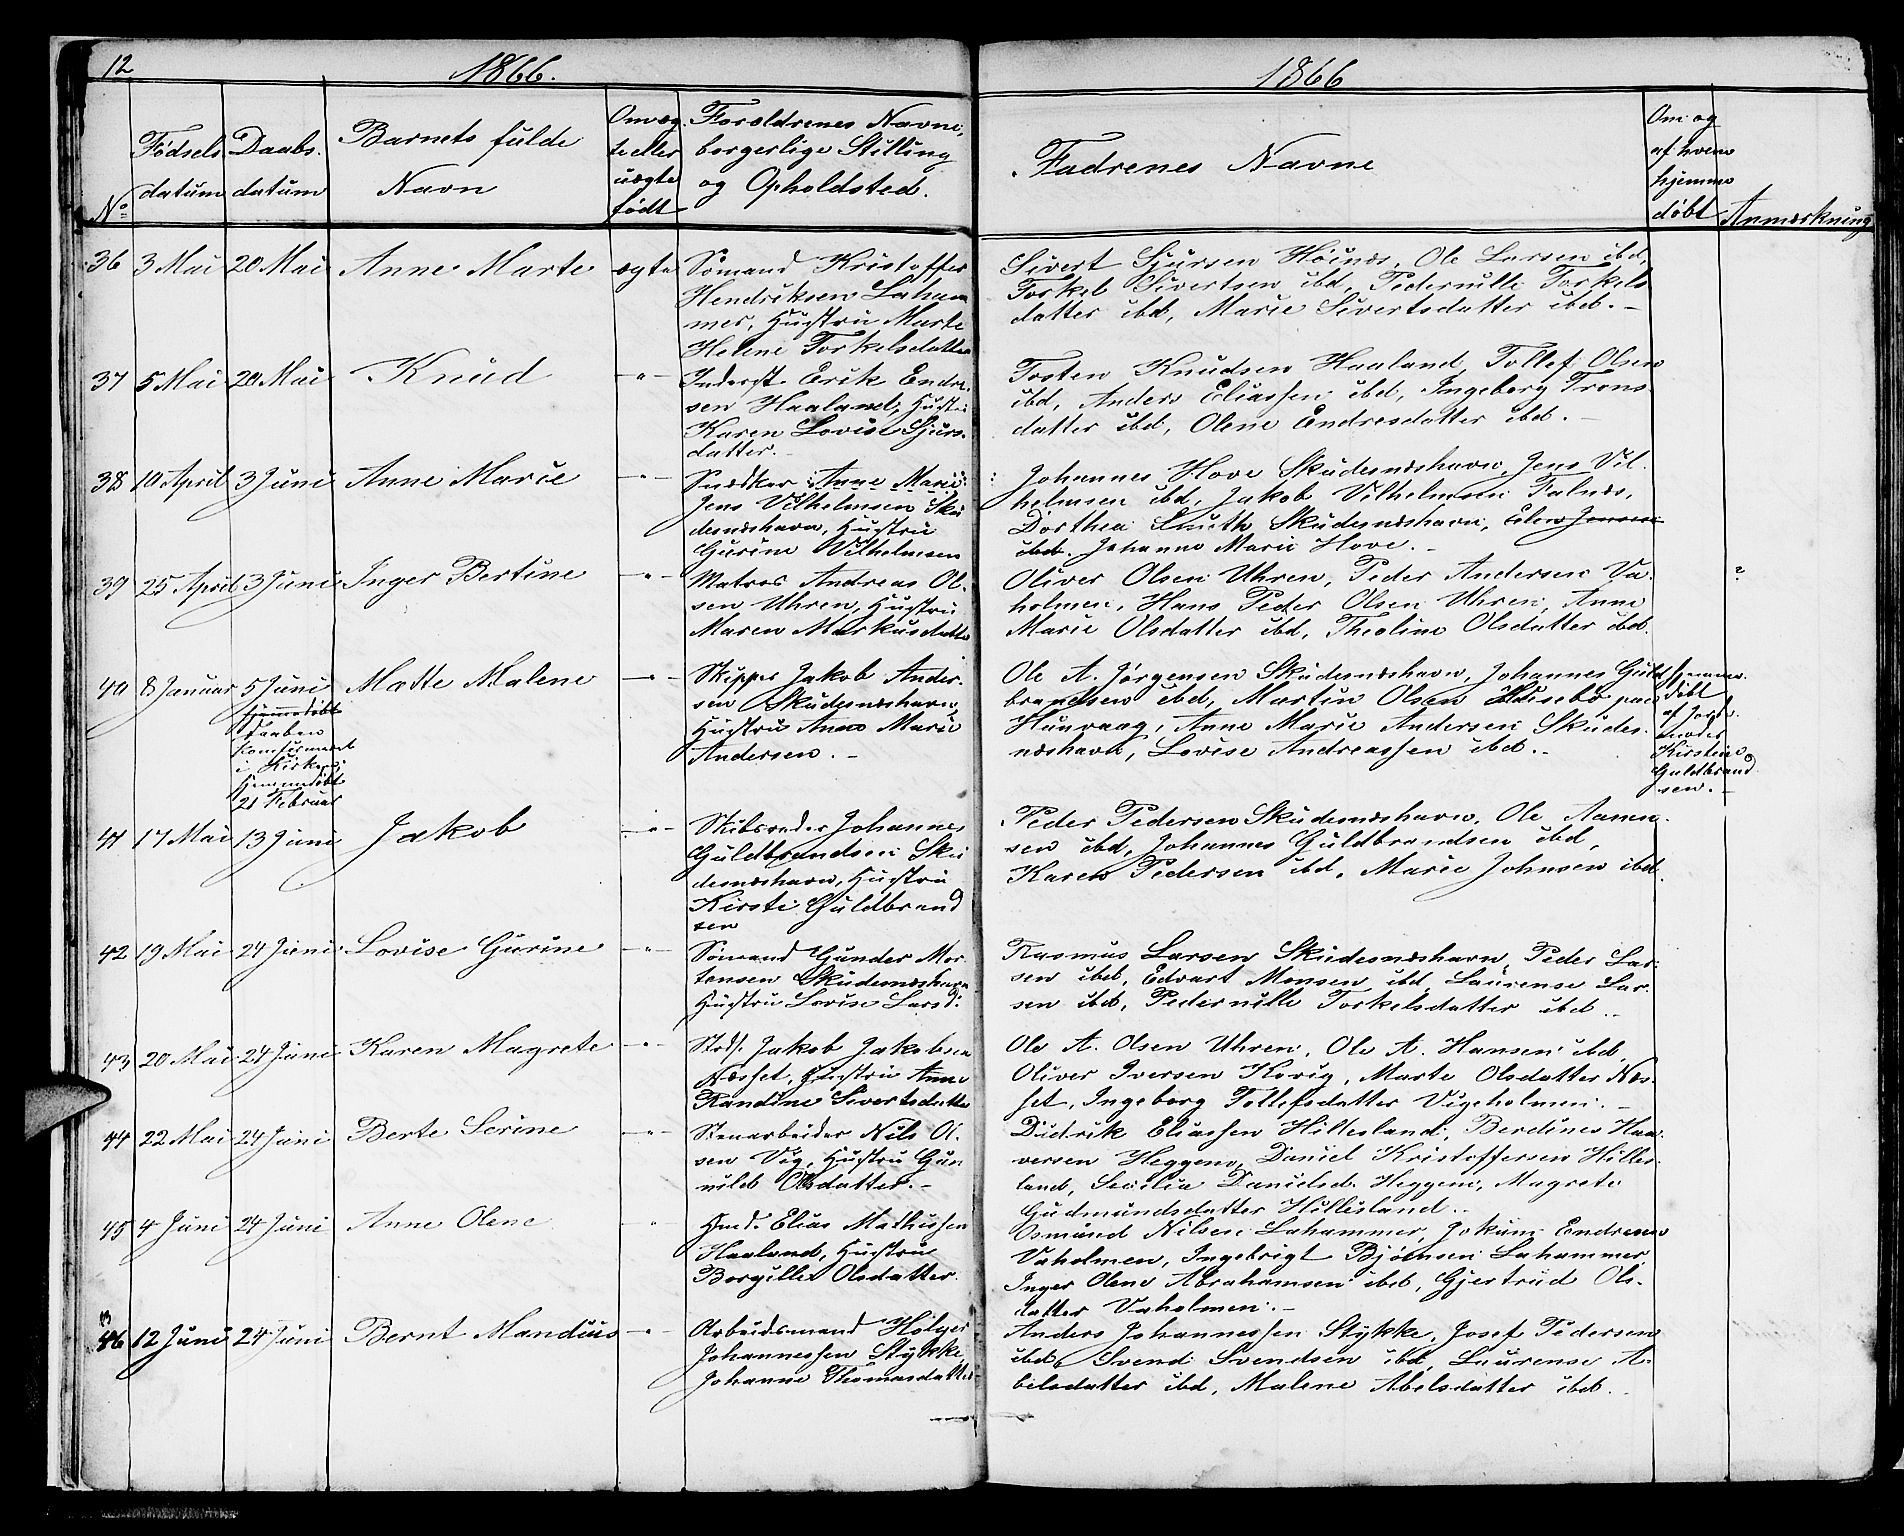 12
1866.
1866
No
Fødsels
datum
Daabs.
datum
Barnets fulde
Navn
Om æg
te eller
uægte
født
Forældrenes Navne,
borgerlige Stilling
og Opholdsted.
Fadrenes Navne
Om og
af hvem
hjemme
døbt
Anmærkning
36 3 Mai 20 Mai Anne Marte ægte
Sømand Kristoffer
Hendriksen Laham
mer, Hustru Marte
Helene Torkelsdatter
Sivert Sjursen Høines, Ole Larsen ibd,
Torkel Sivertsen ibd, Pedernille Torkels
datter ibd, Marie Sivertsdatter ibd. –
37 5 Mai 20 Mai Knud –"–
Inderst Erik Endre-
sen Haaland, Hustru
Karen Lovise Sjurs-
datter.
Tosten Knudsen Haaland, Tollef Olsen
ibd, Anders Eliassen ibd, Ingeborg Trons-
datter ibd, Olene Endresdatter ibd. –
38 10 April 3 Juni Anne Marie –"–
Snedker Anne Marie
Jens Vilhelmsen Sku
desneshavn, Hustru
Gurine Vilhelmsen
Johannes Hove Skudesneshavn, Jens Vil-
helmsen ibd, Jakob Vilhelmsen Falnes,
Dorthea Smith Skudesneshavn, Elen Jensen
ibd. Johanne Marie Hove. –
39 25 April 3 Juni Inger Bertine –"–
Matros Andreas Ol-
sen Uhren, Hustru
Maren Markusdatter
Oliver Olsen Uhren, Peder Andersen Va-
holmen, Hans Peder Olsen Uhren, Anne
Marie Olsdatter ibd, Theoline Olsdatter ibd.
40 8 Januar 5 Juni Mette Malene –"–
Hjemmedøbt
Daaben
Konfirmeret
i Kirken;
Hjemmedøbt
21 Februar
Skipper Jakob Ander-
sen Skudesneshavn,
Hustru Anne Marie
Andersen. –
Ole A. Jørgensen Skudesneshavn, Johannes Guld
brandsen ibd, Martin Olsen Husebø paa
Hunvaag, Anne Marie Andersen Skudes-
neshavn, Lovise Andreassen ibd. –
Hjemme-
døbt
af Jord-
moder
Kirstine
Guldbrand
sen. –
41 17 Mai 13 Juni Jakob –"–
Skibsreder Johannes
Guldbrandsen Sku
desneshavn, Hustru
Kirsti Guldbrand
sen
Peder Pedersen Skudesneshavn, Ole Aamu-
sen ibd, Johannes Guldbrandsen ibd,
Karen Pedersen ibd, Marie Johnsen ibd.
42 19 Mai 24 Juni Lovise Gurine –"–
Sømand Gunder Mor
tensen Skudesneshavn
Hustru Lovise Larsd.
Rasmus Larsen Skudesneshavn, Peder Lar-
sen ibd, Edvart Monsen ibd, Laurense Lar-
sen ibd, Pedernille Torkelsdatter ibd –
43 20 Mai 24 Juni Karen Magrete –"–
Strds. Jakob Jakobsen
Nesset, Hustru Anne
Randine Sivertsdatter
Ole A. Olsen Uhren, Ole A. Hansen ibd,
Oliver Iversen Kovig, Marte Olsdatter Nes-
set, Ingeborg Tollefsdatter Vigeholmen. –
44 22 Mai 24 Juni Berte Serine –"–
Stenarbeider Nils Ol-
sen Vig, Hustru Gun
nild Olsdatter. –
Didrik Eliassen Hillesland, Berdines Haa-
versen Heggem, Daniel Kristoffersen Hilles-
land, Secilia Danielsd. Heggem, Magrete
Gudmundsdatter Hillesland –
45 4 Juni 24 Juni Anne Olene "
Hmd. Elias Mathissen
Haaland, Hustru
Borgille Olsdatter.
Osmund Nilsen Lahammer, Jokum Endresen
Vaholmen, Ingebrigt Bjørnsen Lahammer,
Inger Olene Abrahamsen ibd, Gjertrud Ols-
datter Vaholmen. –
46 12 Juni 24 Juni Bernt Mandius –"–
Arbeidsmand Holger
Johannessen Stykke
Johanne Thomasdatter
Anders Johannessen Stykke, Josef Pedersen
ibd, Svend Svendsen ibd, Laurense A-
belsdatter ibd, Malene Abelsdatter ibd. –